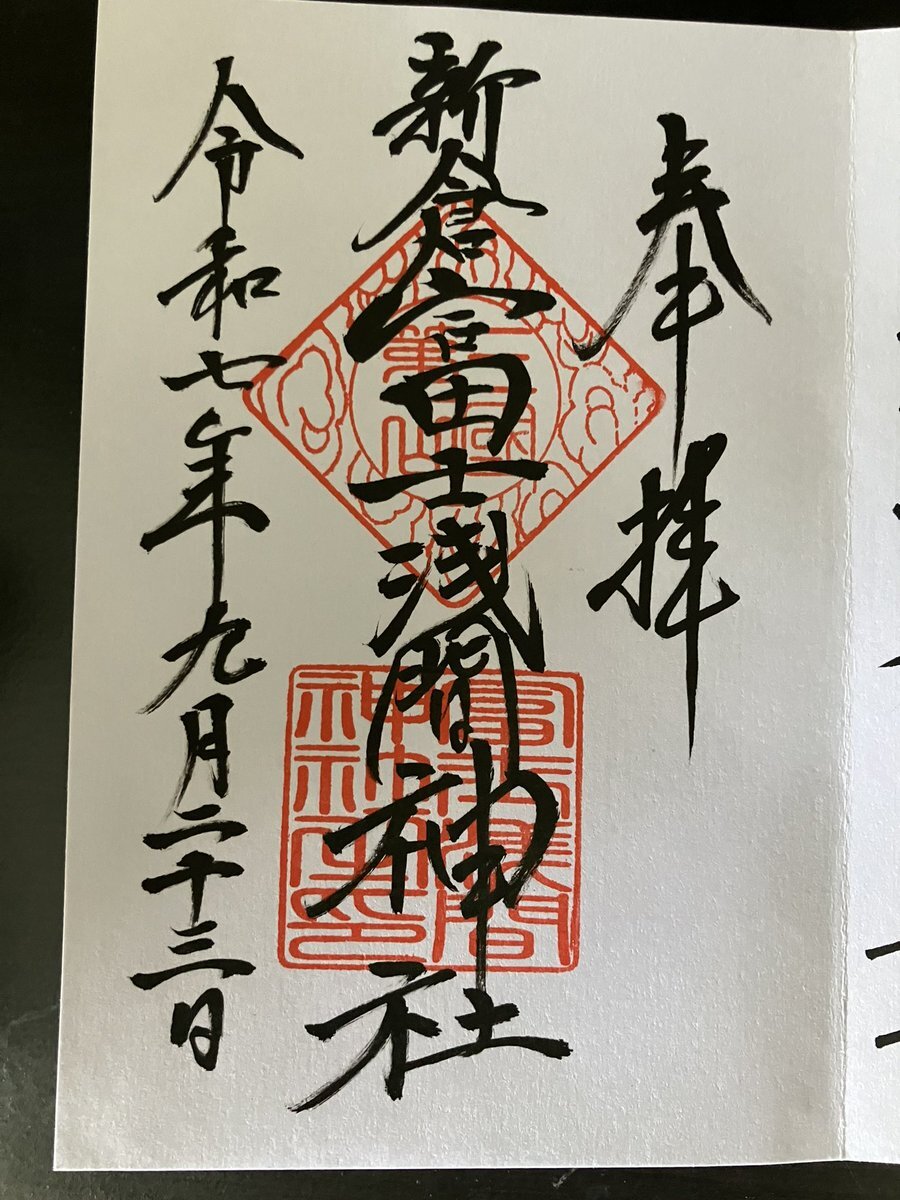 奉拝
新倉富士浅間神社
令和七年九月二十三日
三國第一山
冨士浅間神社之印